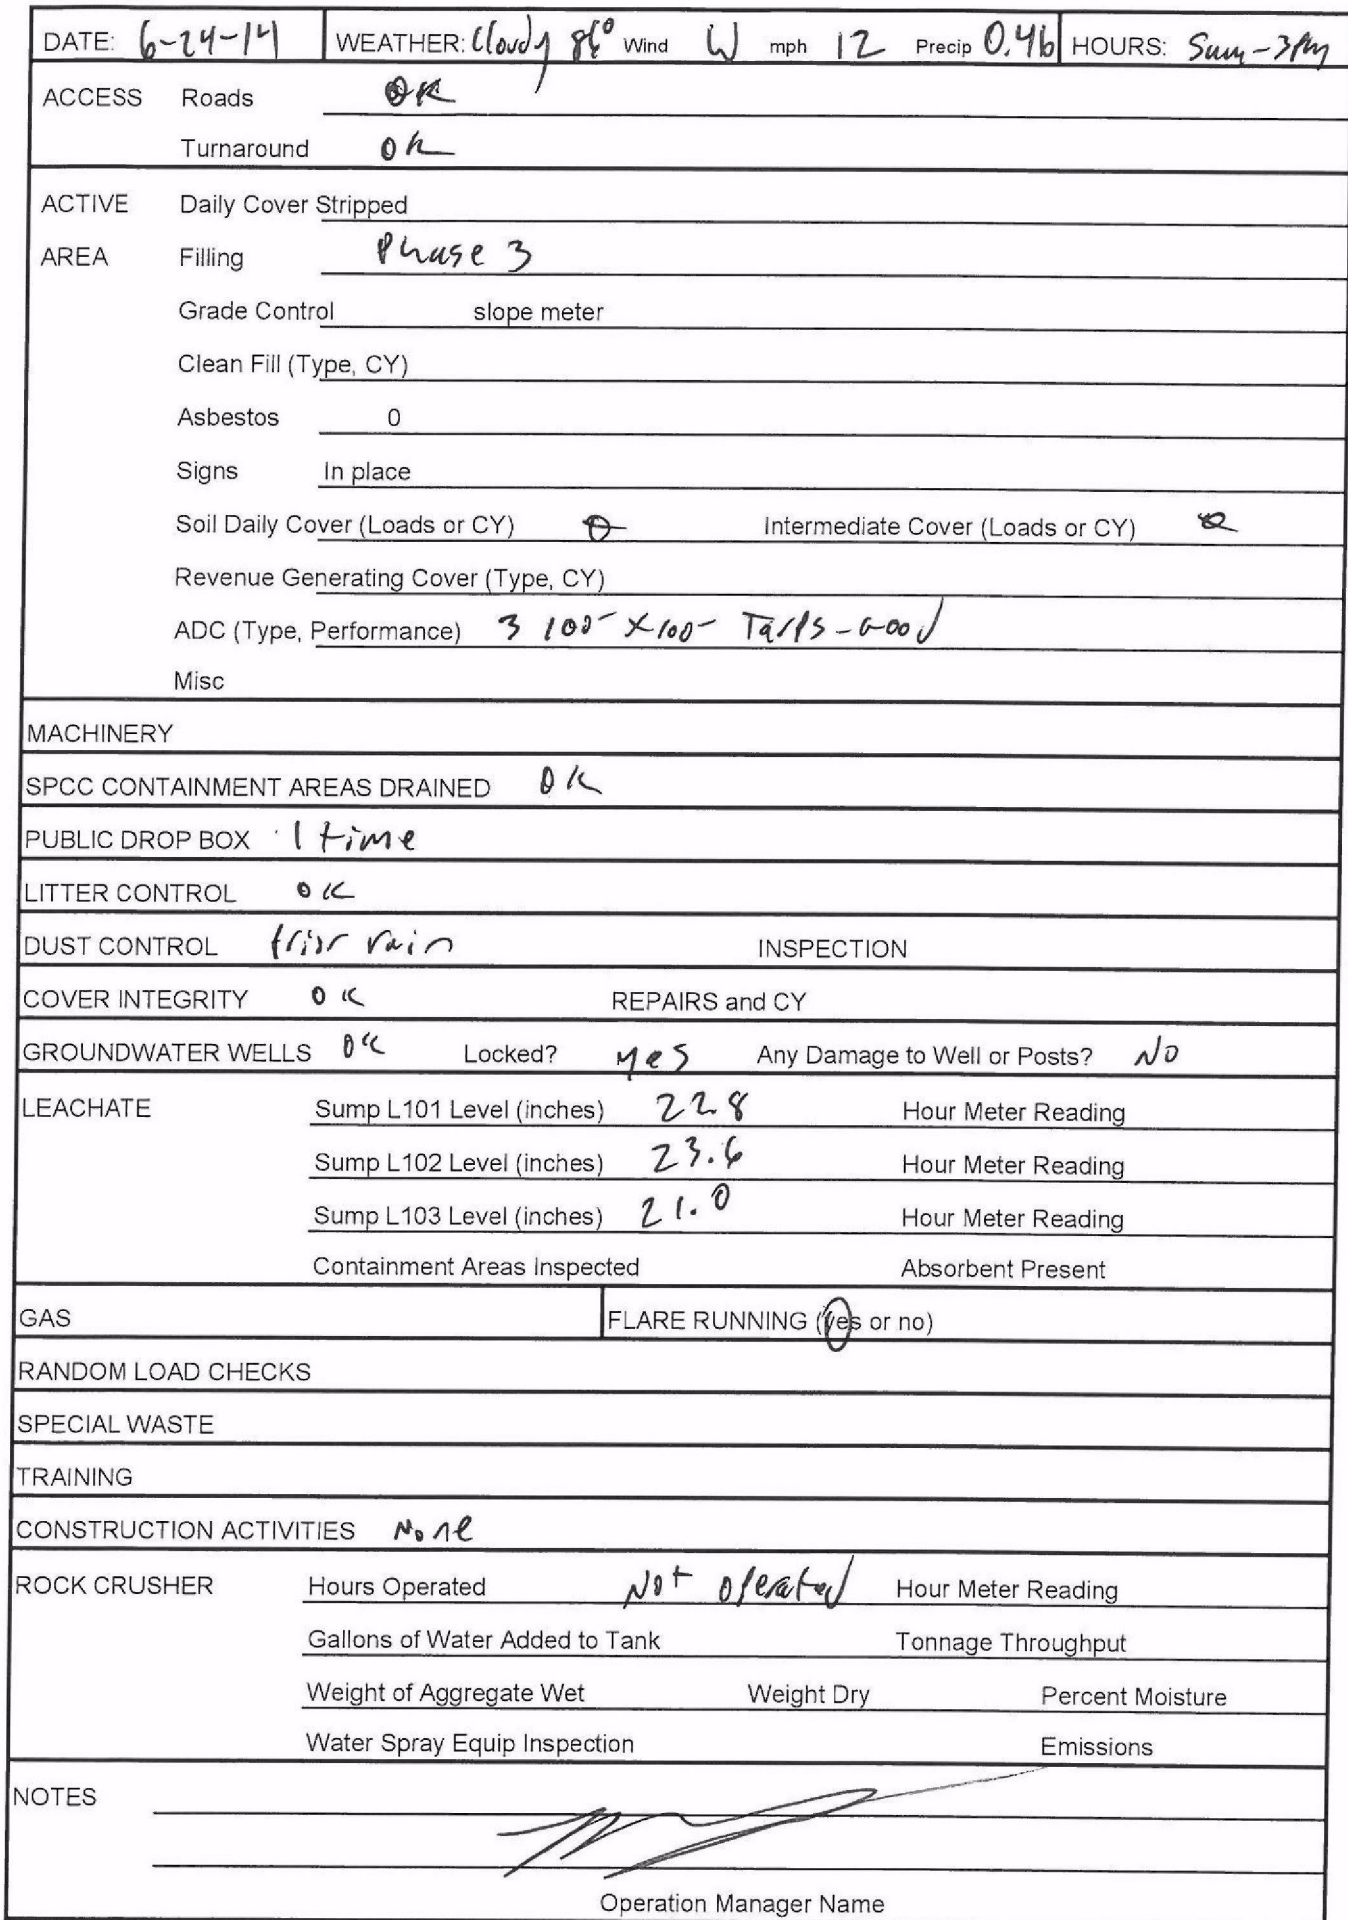 DATE: 6-24-14 WEATHER: Cloudy 86° Wind W mph 12 Precip 0.46 HOURS: 5am-3pm
ACCESS Roads OK
Turnaround OK
ACTIVE Daily Cover Stripped
AREA Filling Phase 3
Grade Control slope meter
Clean Fill (Type, CY)
Asbestos 0
Signs In place
Soil Daily Cover (Loads or CY) 0 Intermediate Cover (Loads or CY) 0
Revenue Generating Cover (Type, CY)
ADC (Type, Performance) 3 100' x 100' Tarps - Good
Misc
MACHINERY
SPCC CONTAINMENT AREAS DRAINED OK
PUBLIC DROP BOX 1 time
LITTER CONTROL OK
DUST CONTROL Prior rain INSPECTION
COVER INTEGRITY OK REPAIRS and CY
GROUNDWATER WELLS OK Locked? Yes Any Damage to Well or Posts? NO
LEACHATE Sump L101 Level (inches) 22.8 Hour Meter Reading
Sump L102 Level (inches) 23.6 Hour Meter Reading
Sump L103 Level (inches) 21.0 Hour Meter Reading
Containment Areas Inspected Absorbent Present
GAS FLARE RUNNING (yes or no)
RANDOM LOAD CHECKS
SPECIAL WASTE
TRAINING
CONSTRUCTION ACTIVITIES None
ROCK CRUSHER Hours Operated Not operated Hour Meter Reading
Gallons of Water Added to Tank Tonnage Throughput
Weight of Aggregate Wet Weight Dry Percent Moisture
Water Spray Equip Inspection Emissions
NOTES
Operation Manager Name